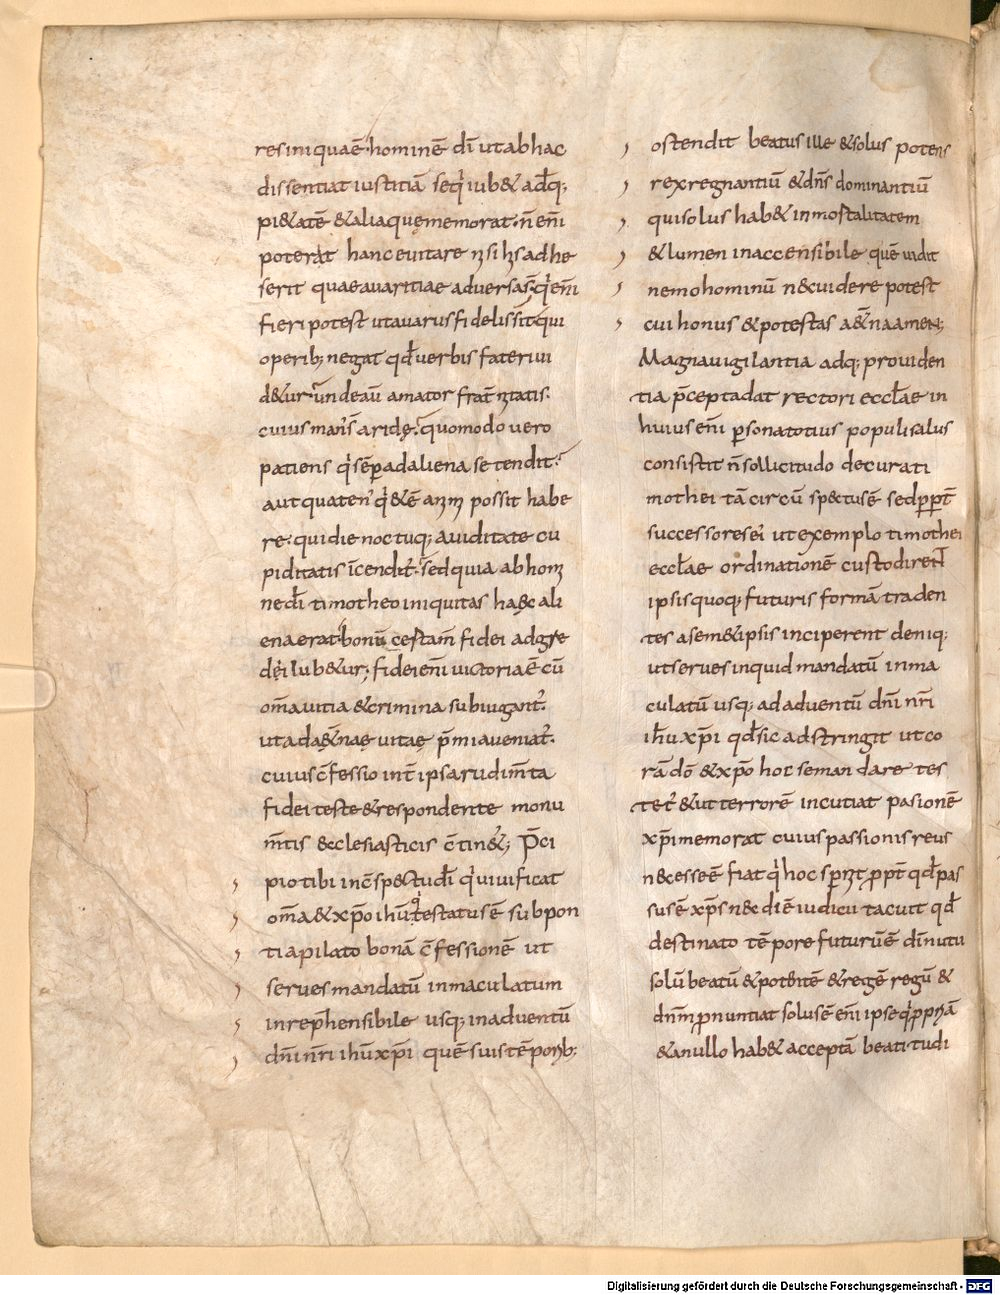 res iniqua ē hominē dī ut ab hac
dissentiat iustitiā seqˈ iub& adq;
pi&atē & alia quę memorat. n̄ enī
poterat hanc euitare nisi his adhe
serit quae auaritiae aduersa s̄. qˈ enī
fieri potest ut auarus fidelis sit. qui
operib; negat qđ uerbis fateri ui
d&ur. unde aū amator frat̄nitatis.
cuius man's aridę. quomodo uero
patiens qˈ sēp ad aliena se tendit.
aut quaten' qˈ&ē animi possit habe
re. qui die noctuq; auiditate cu
piditatis īcendit'. sed quia ab homi
ne dī timotheo iniquitas haec ali
ena erat. bonū cestam̄ fidei adgre
di iub&ur; fidei enī uictoria ē cū
om̄a uitia & crimina subiugant'.
ut ad aęt̄nae uitae p̄mia ueniat'.
cuius c̄fessio int̄ ipsa rudim̄ta
fidei teste & respondente monu
m̄tis & cclesiasticis c̄tin&'; P̄ci
pio tibi in c̄sp&tu dī qˈ uiuificat
om̄a & xp̄o ihū qˈ testatus ē sub pon
ti a pilato bonā c̄fessionē ut
serues mandatū inmaculatum
inrep̄hensibile usq; in aduentū
dn̄i nr̄i ihū xp̄i quē suis tēporib;
ostendit beatus ille & solus potens
rex regnantiū & dn̄s dominantiū
qui solus hab& inmortalitatem
& lumen inaccensibile quē uidit
nemo hominū n&c uidere potest
cui honus & potestas a&̄na amen;
Magna uigilantia adq; prouiden
tia p̄cepta dat rectori eccłae in
huius enī persona totius populi salus
consistit n̄ sollicitudo de cura ti
mothei tā circū sp&tus ē sed ppt̄
successores ei' ut exemplo timothei
eccłae ordinationē custodirent
ipsis quoq; futuris formā traden
tes a sem&ipsis inciperent deniq;
ut serues inquid mandatū inma
culatū usq; ad aduentū dn̄i nr̄i
ihū xp̄i qđ sic adstringit ut co
rā dō & xp̄o hoc se mandare tes
tet' & ut terrorē incutiat pasionē
xp̄i memorat cuius passionis reus
n&cesse ē fiat qˈ hoc spernit ppt̄ qđ pas
sus ē xp̄s n&c diē iudicii tacuit qđ
destinato tēpore futurū ē dī nutu
solū beatū & potentē & regē regū &
dn̄m pronuntiat solus ē enī ipse qˈ ppriā
& a nullo hab& acceptā beatitudi
Digitalisierung gefördert durch die Deutsche Forschungsgemeinschaft - DFG